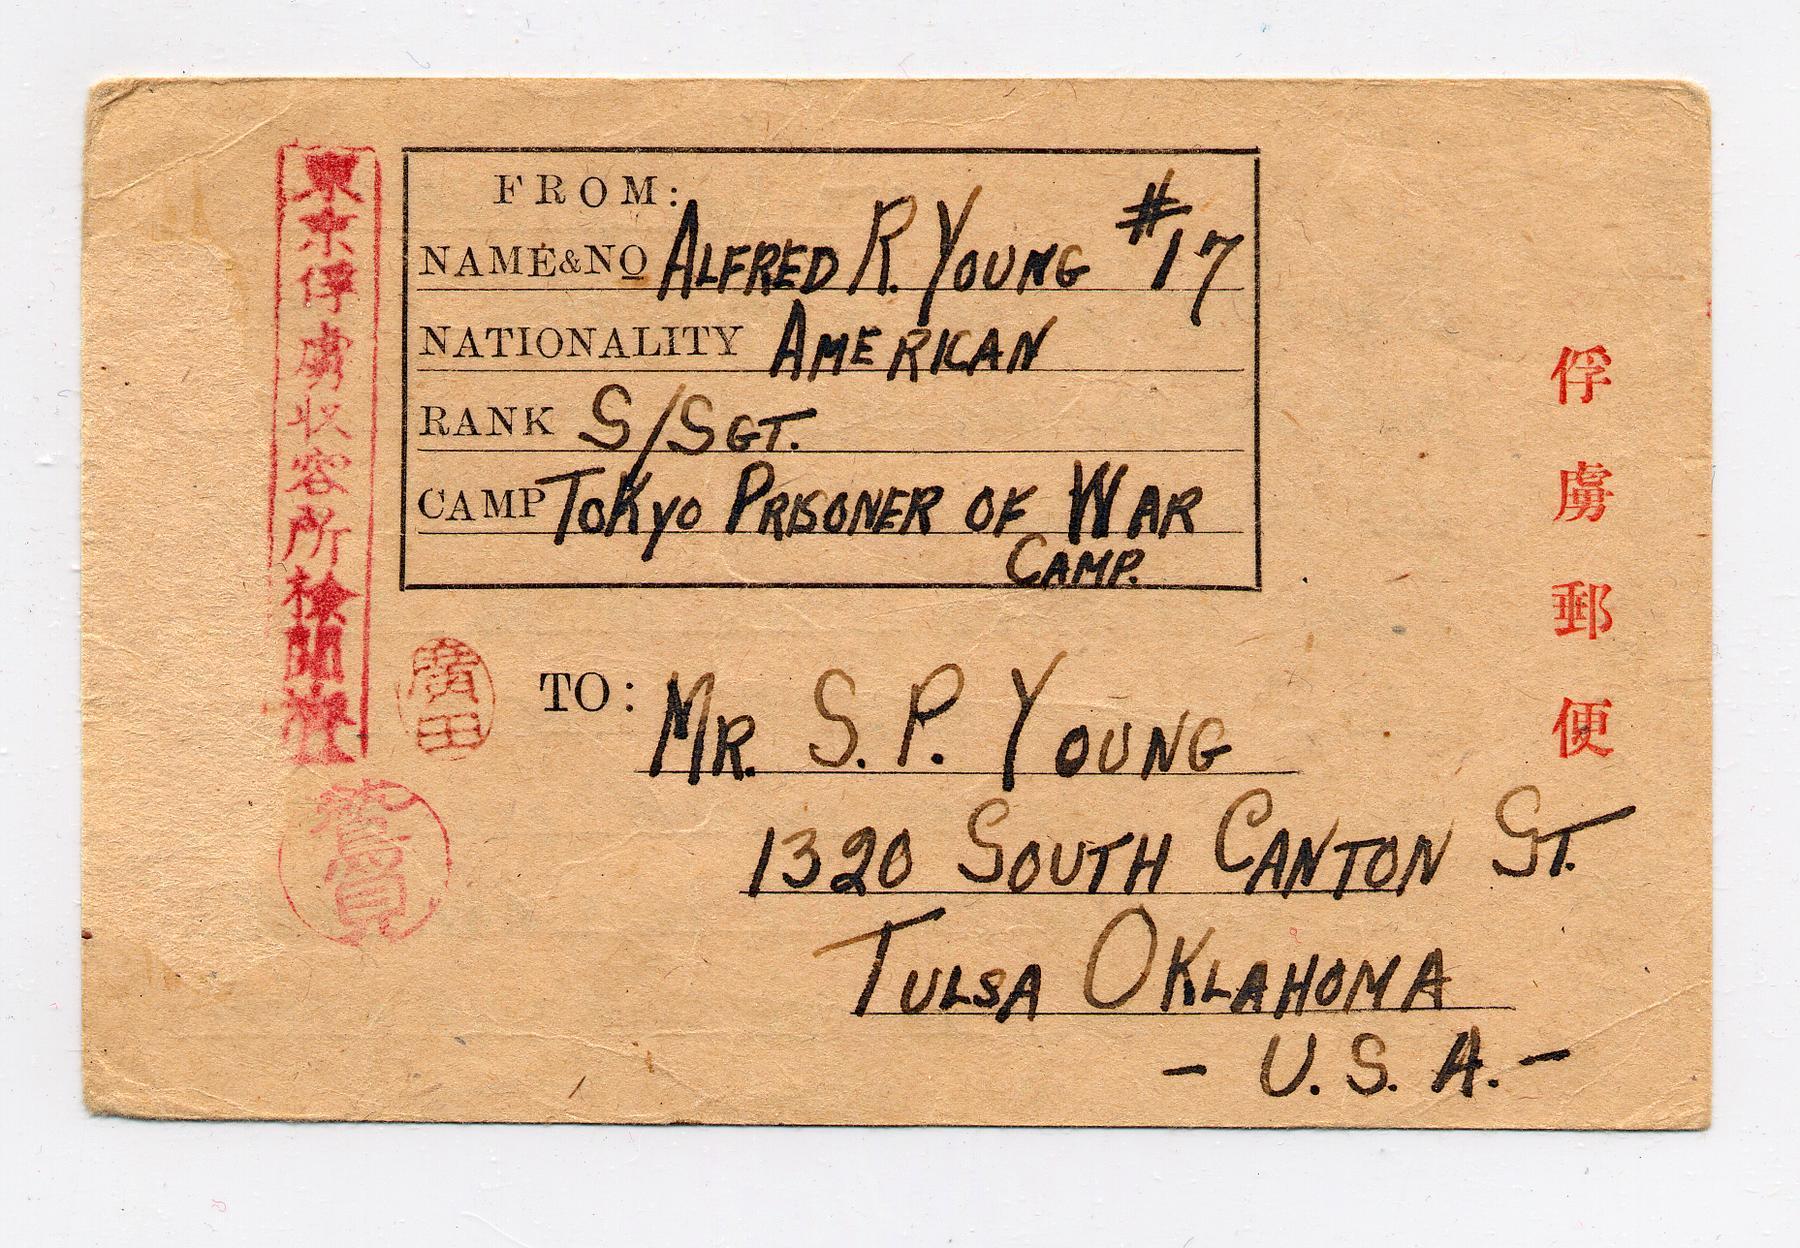 東京俘虜収容所検閲濟
FROM:
NAME&NO ALFRED R. YOUNG #17
NATIONALITY AMERICAN
RANK S/SGT.
CAMP TOKYO PRISONER OF WAR
CAMP.
俘虜郵便
廣田
TO: MR. S. P. YOUNG
1320 SOUTH CANTON ST.
TULSA OKLAHOMA
- U. S. A. -